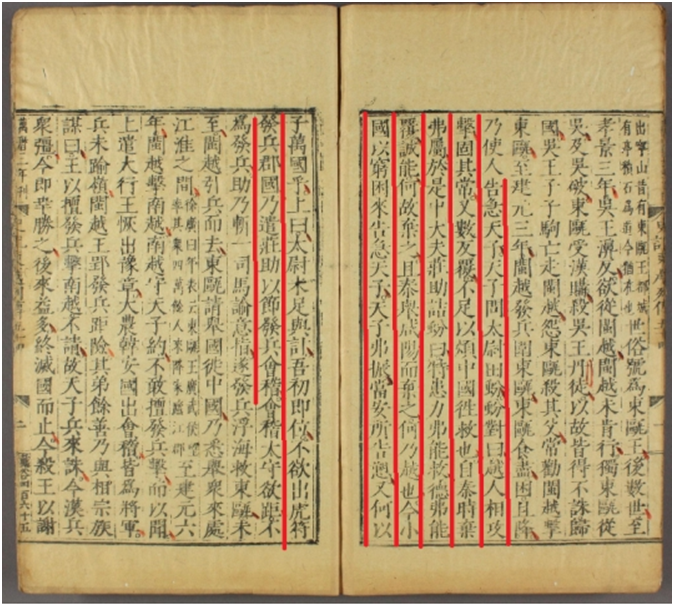 出寧山昔有東甌王都城有亭積石為雨今猶在也世俗號為東甌王後數世至
孝景三年吳王濞反欲從閩越閩越未肯行獨東甌從
吳及吳破東甌受漢購殺吳王丹徒以故皆得不誅歸
國吳王子子駒亡走閩越怨東甌殺其父常勸閩越擊
東甌至建元三年閩越發兵圍東甌東甌食盡困且降
乃使人告急天子天子問太尉田蚡蚡對曰越人相攻
擊固其常又數反覆不足以煩中國往救也自秦時棄
弗屬於是中大夫莊助詰蚡曰特患力弗能救德弗能
覆誠能何故棄之且秦舉咸陽而棄之何乃越也今小
國以窮困來告急天子天子弗振當安所告愬又何以
子萬國乎上曰太尉未足與計吾初即位不欲出虎符
發兵郡國乃遣莊助以節發兵會稽會稽太守欲距不
為發兵助乃斬一司馬諭意指遂發兵浮海救東甌未
至閩越引兵而去東甌請舉國徙中國乃悉舉衆來處
江淮之間徐廣曰年表云東甌王廣武侯望率其衆四萬餘人來降家廬江郡至建元六
年閩越擊南越南越守天子約不敢擅發兵擊而以聞
上遣大行王恢出豫章大農韓安國出會稽皆為將軍
兵未踰嶺閩越王郢發兵距險其弟餘善乃與相宗族
謀曰王以擅發兵擊南越不請故天子兵來誅今漢兵
衆彊今即幸勝之後來益多終滅國而止今殺王以謝
二